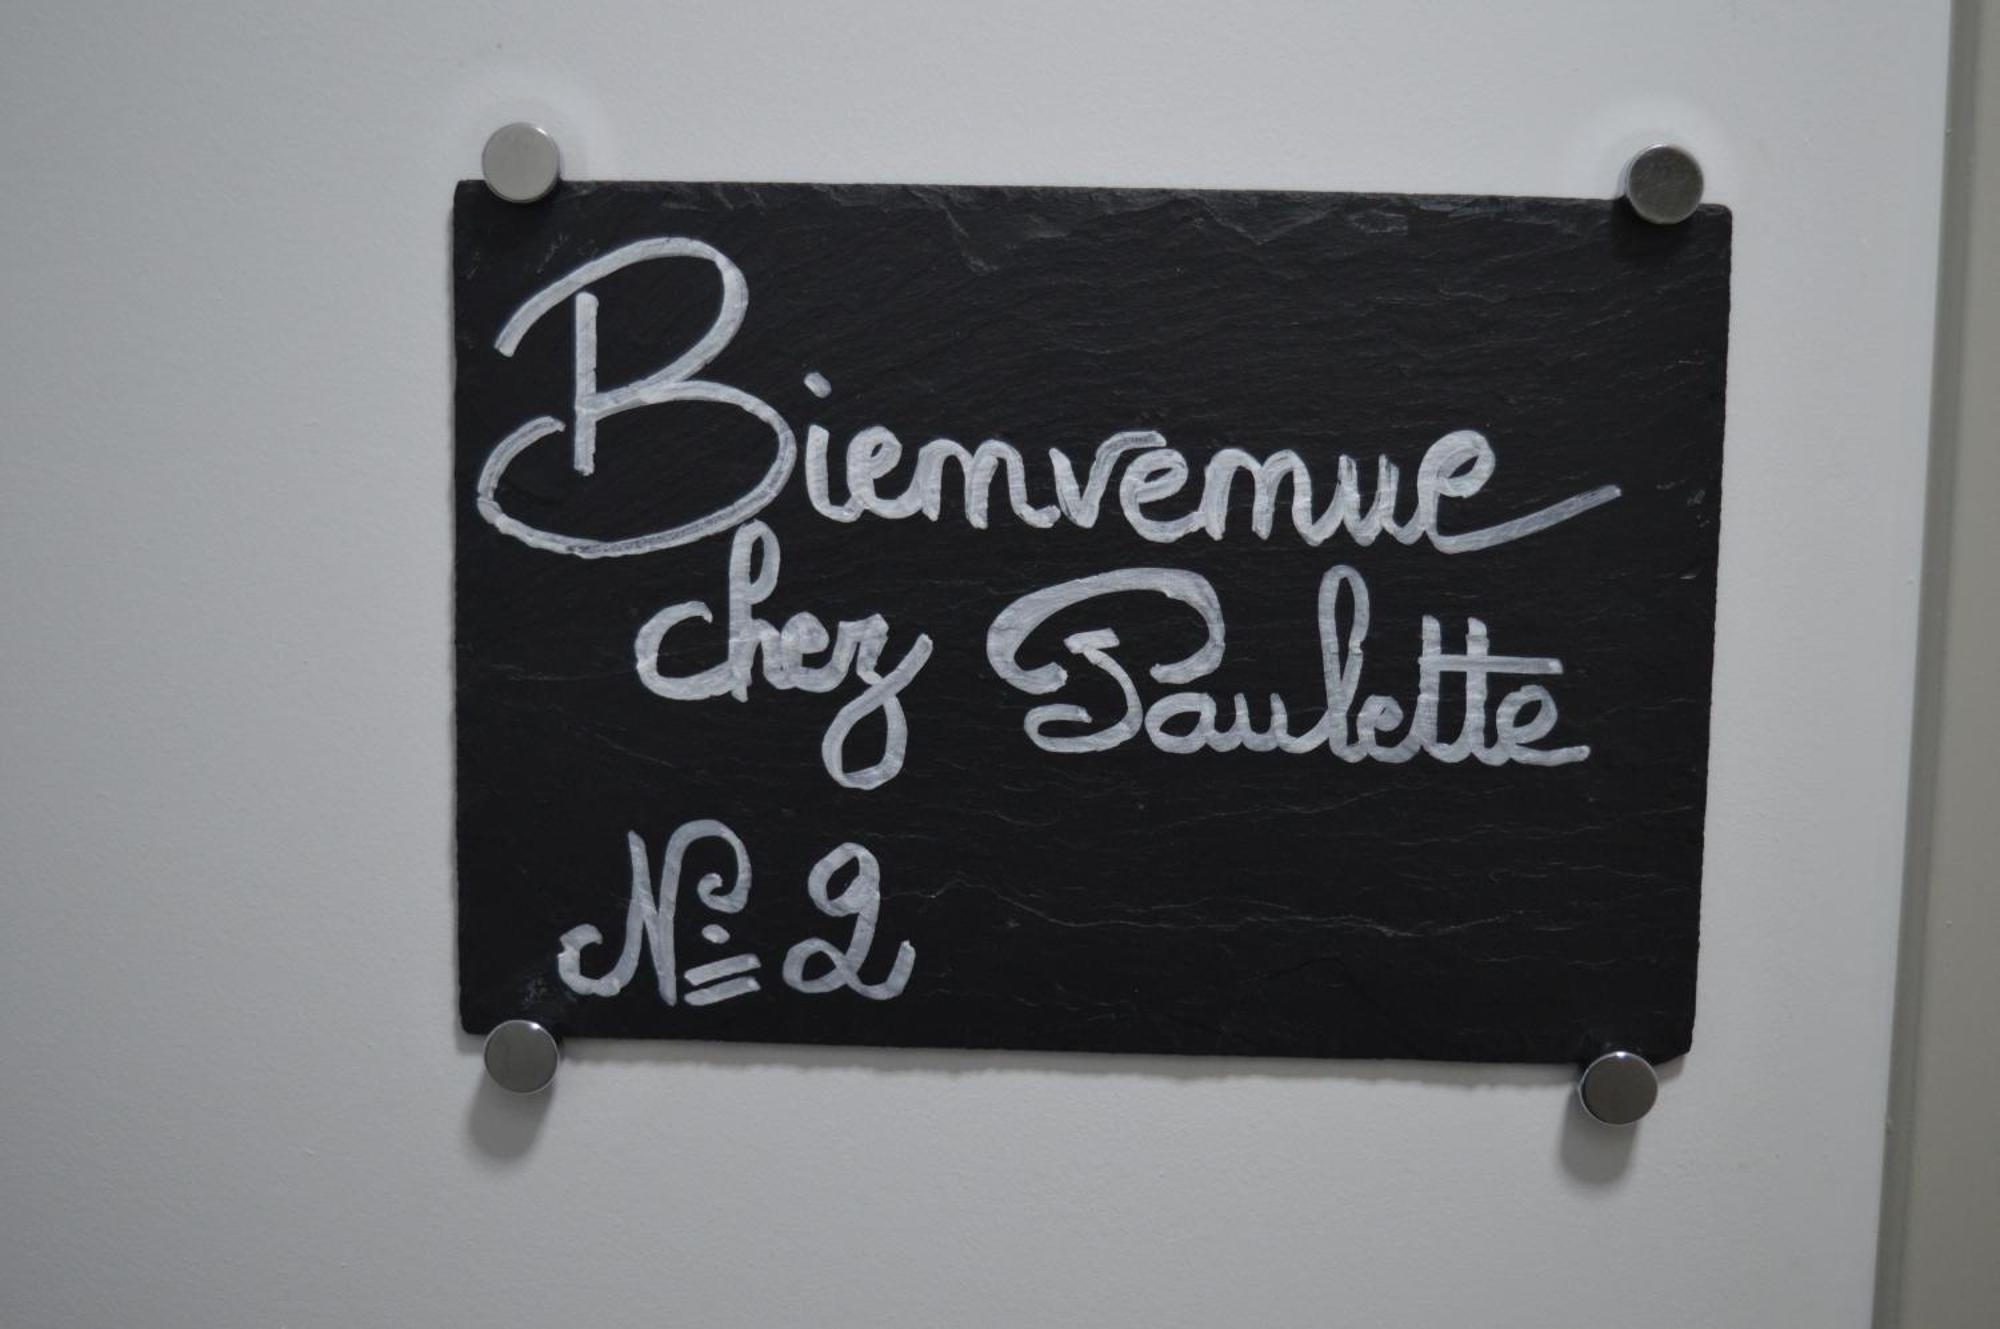 Bienvenue
chez Paulette
N° 2